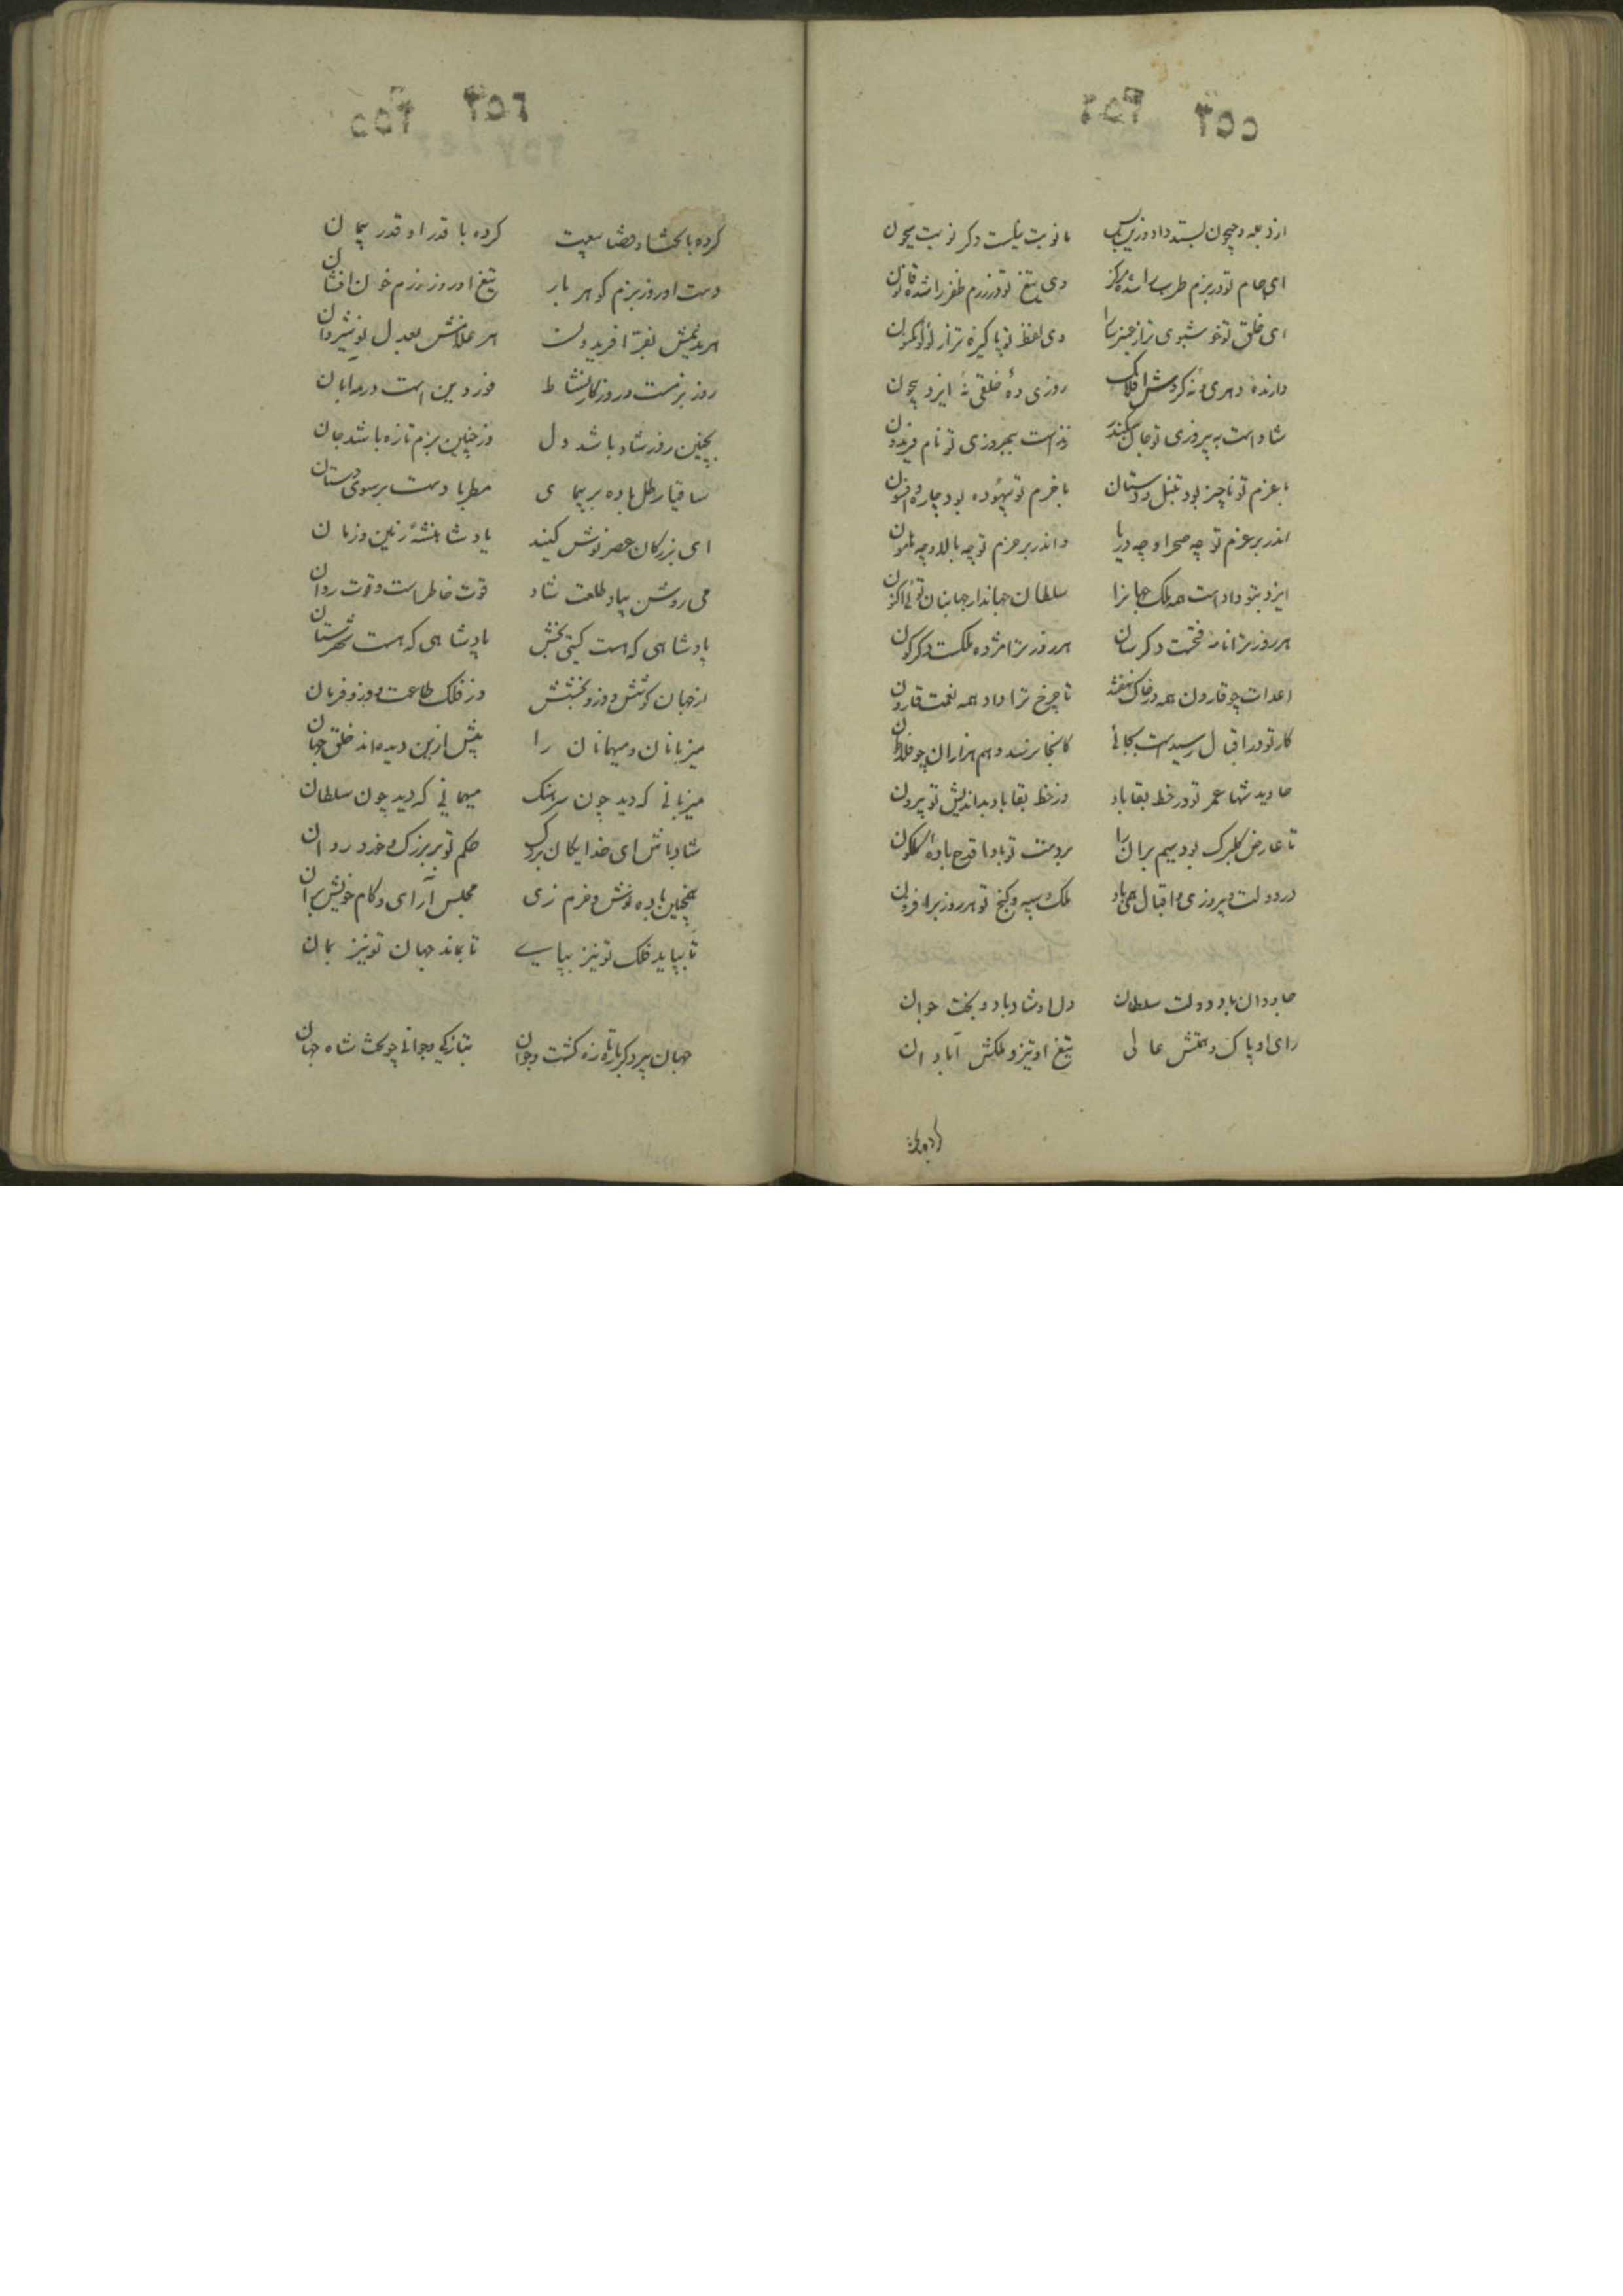 ۲۵۴ ۲۵۵
از دجله و جیحون بستد داد وزین پس تا نوبت نیلست و کر نوبت سیحون
ای جام تو در بزم طرب را شده مرکز وی تیغ تو در رزم ظفر را شده قانون
ای خلق تو خوشبوی تر از عنبر سارا وی لفظ تو پاکیزه تر از لؤلؤ مکنون
دارنده دهری و نه کردش افلاک روزی ده خلقی نه ایزد بیچون
شاد است به پیروزی تو جان سکندر زنده است ببهروزی تو نام فریدون
با عزم تو ناچیز بود تنبل و دستان با حزم تو بیهوده بود چاره و افسون
اندر بر عزم تو چه صحرا و چه دریا و اندر بر حزم تو چه بالا و چه هامون
ایزد بتو داد است همه ملک جهانرا سلطان جهاندار جهانبان توئی اکنون
هر روز ترا نامه فتحست دکر سان هر روز ترا مژده ملکست دکرکون
اعدات چو قارون همه در خاک نهفتند تا چرخ ترا داد همه نعمت قارون
کار تو در اقبال رسیدست بجائی کانجا نرسد وهم هزاران چو فلاطون
جاوید شها عمر تو در خط بقا باد وز خط بقا باد بداندیش تو بیرون
تا عارض کلبرک بود سیم بران را بر دست تو بادا قدح باده کلکون
در دولت و پیروزی و اقبال همی باد ملک و سپه و کنج تو هر روز بر افزون
جاودان باد دولت سلطان دل او شاد باد و بخت جوان
رای او پاک و همتش عالی تیغ او تیز و ملکش آبادان
۲۵۵ ۲۵۶
کرده با بختش او قضا بیعت کرده با قدر او قدر پیمان
دست او روز بزم کوهر بار تیغ او روز رزم خون افشان
هر ندیمش بفر آفریدون هر غلامش بعدل نوشیروان
روز بزمست و روزکار نشاط فرودین است در مه ابان
بچنین روز شاد باشد دل وز چنین بزم تازه باشد جان
ساقیا رطل باده بر پیمای مطربا دست بر سوی دستان
ای بزرکان عصر نوش کنید یاد شاهنشه زمین و زمان
می روشن بیاد طلعت شاد قوت خاطر است و قوت روان
پادشاهی که هست کیتی بخش پادشاهی که هست شهرستان
از جهان کوشش و زو بخشش وز فلک طاعت و زو فرمان
میزبانان و میهمانان را پیش ازین دیده اند خلق جهان
میزبانی که دید چون سرهنک میهمانی که دید چون سلطان
شاد باش ای خدایکان بزرک حکم تو بر بزرک و خرد روان
همچنین باده نوش و خرم زی مجلس آرای و کام خویش بران
تا بپاید فلک تو نیز بپای تا بماند جهان تو نیز بمان
جهان پیر دکر باره تازه کشت و جوان بتازکی و جوانی چو بخت شاه جهان